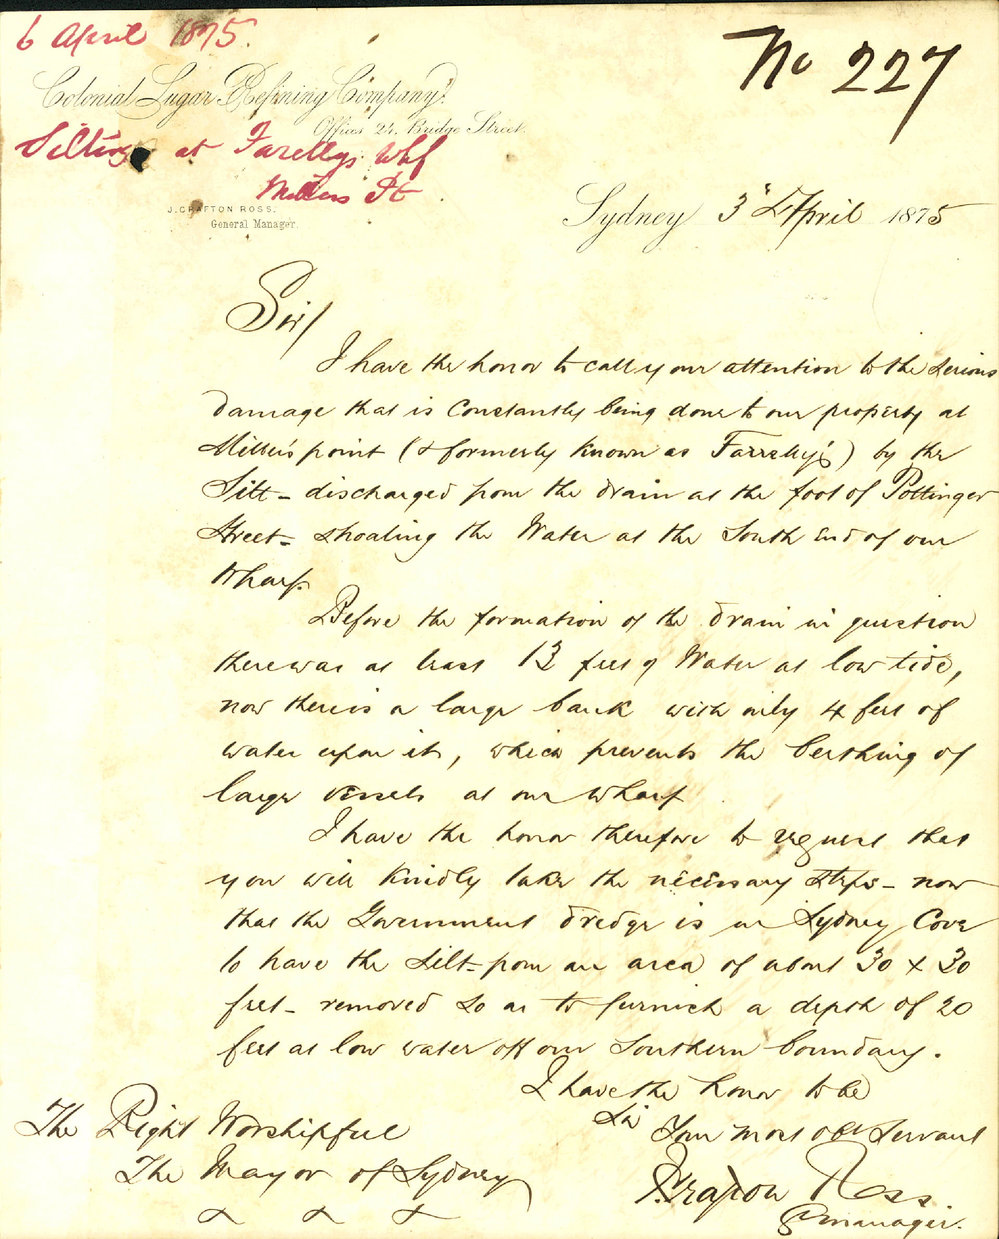 6 April 1875.
No 227
Colonial Sugar Refining Company.
Offices 24, Bridge Street.
Silting at Farellys Whf
Millers Pt
J. GRAFTON ROSS.
General Manager.
Sydney 3rd April 1875
Sir/
I have the honor to call your attention to the serious
damage that is constantly being done to our property at
Miller's point (& formerly known as Farrelly's) by the
Silt - discharged from the drain at the foot of Pottinger
Street - shoaling the Water at the South End of our
Wharf
Before the formation of the drain in question
there was at least 13 feet of Water at low tide,
now there is a large bank with only 4 feet of
water upon it, which prevents the berthing of
large vessels at our wharf
I have the honor therefore to request that
you will kindly take the necessary steps - now
that the Government dredge is in Sydney Cove
to have the silt - from an area of about 30 x 30
feet - removed so as to furnish a depth of 20
feet at low water off our Southern boundary.
I have the honor to be
Sir
Your most obt Servant
J Grafton Ross
G manager.
The Right Worshipful
The Mayor of Sydney